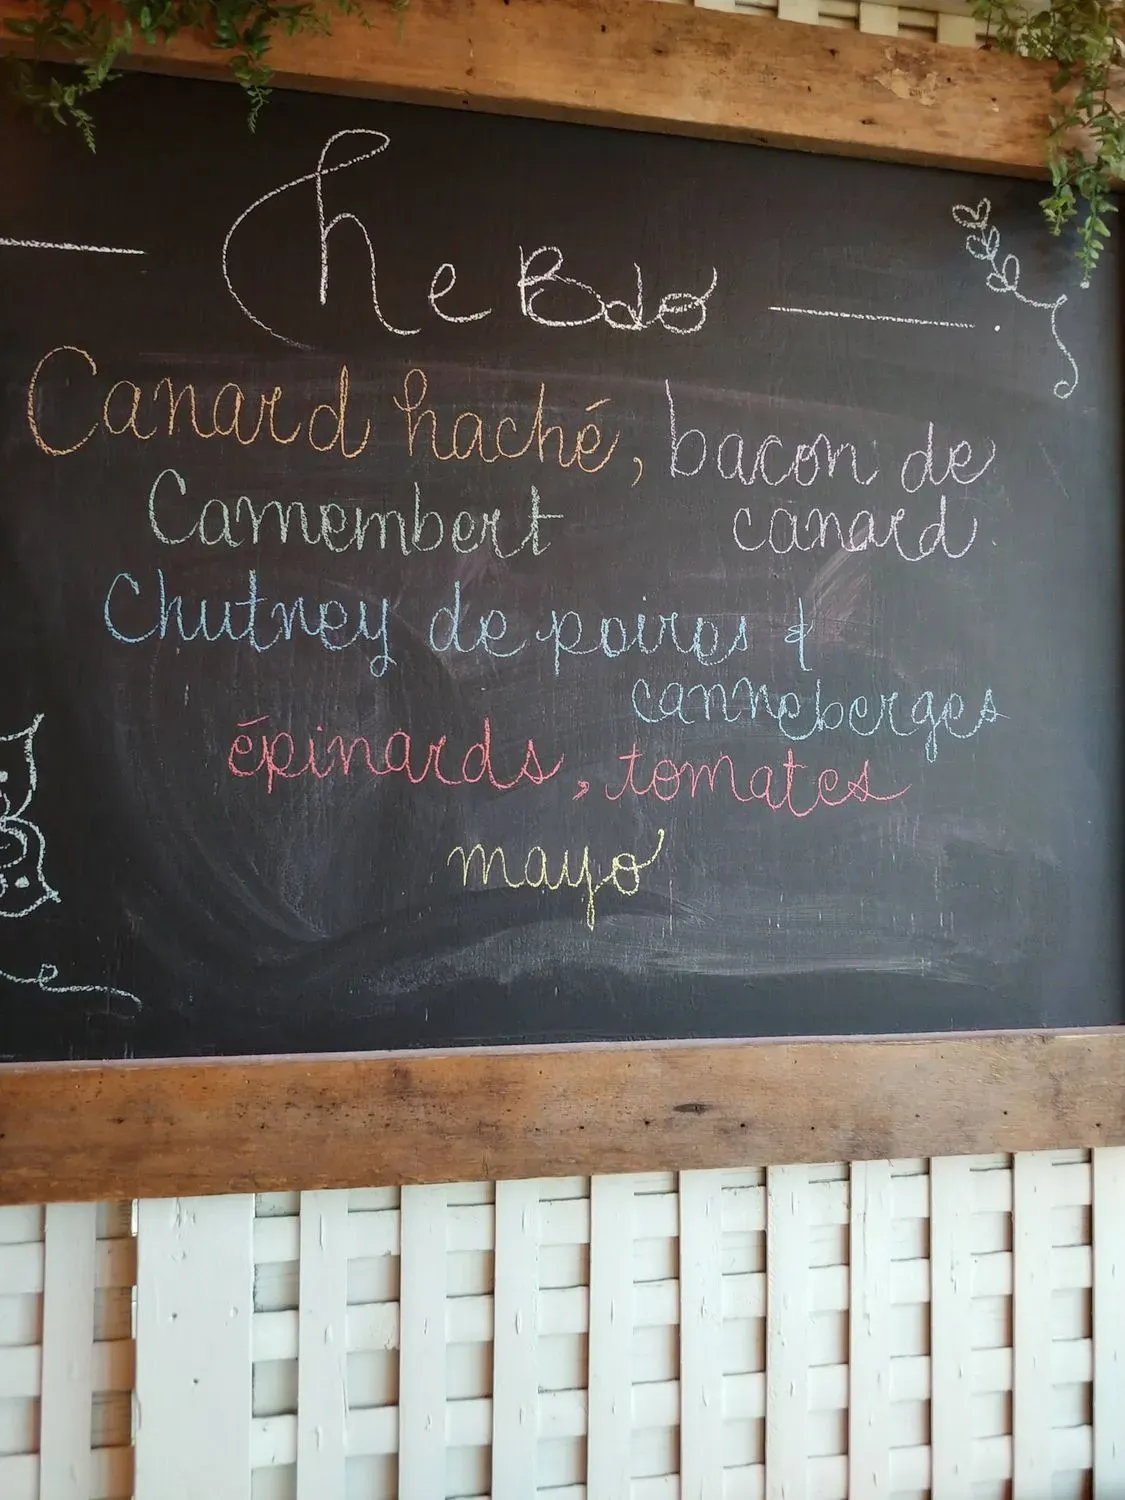 heBdo
Canard haché, bacon de
canard
Camembert
Chutney de poires &
canneberges
épinards, tomates
mayo